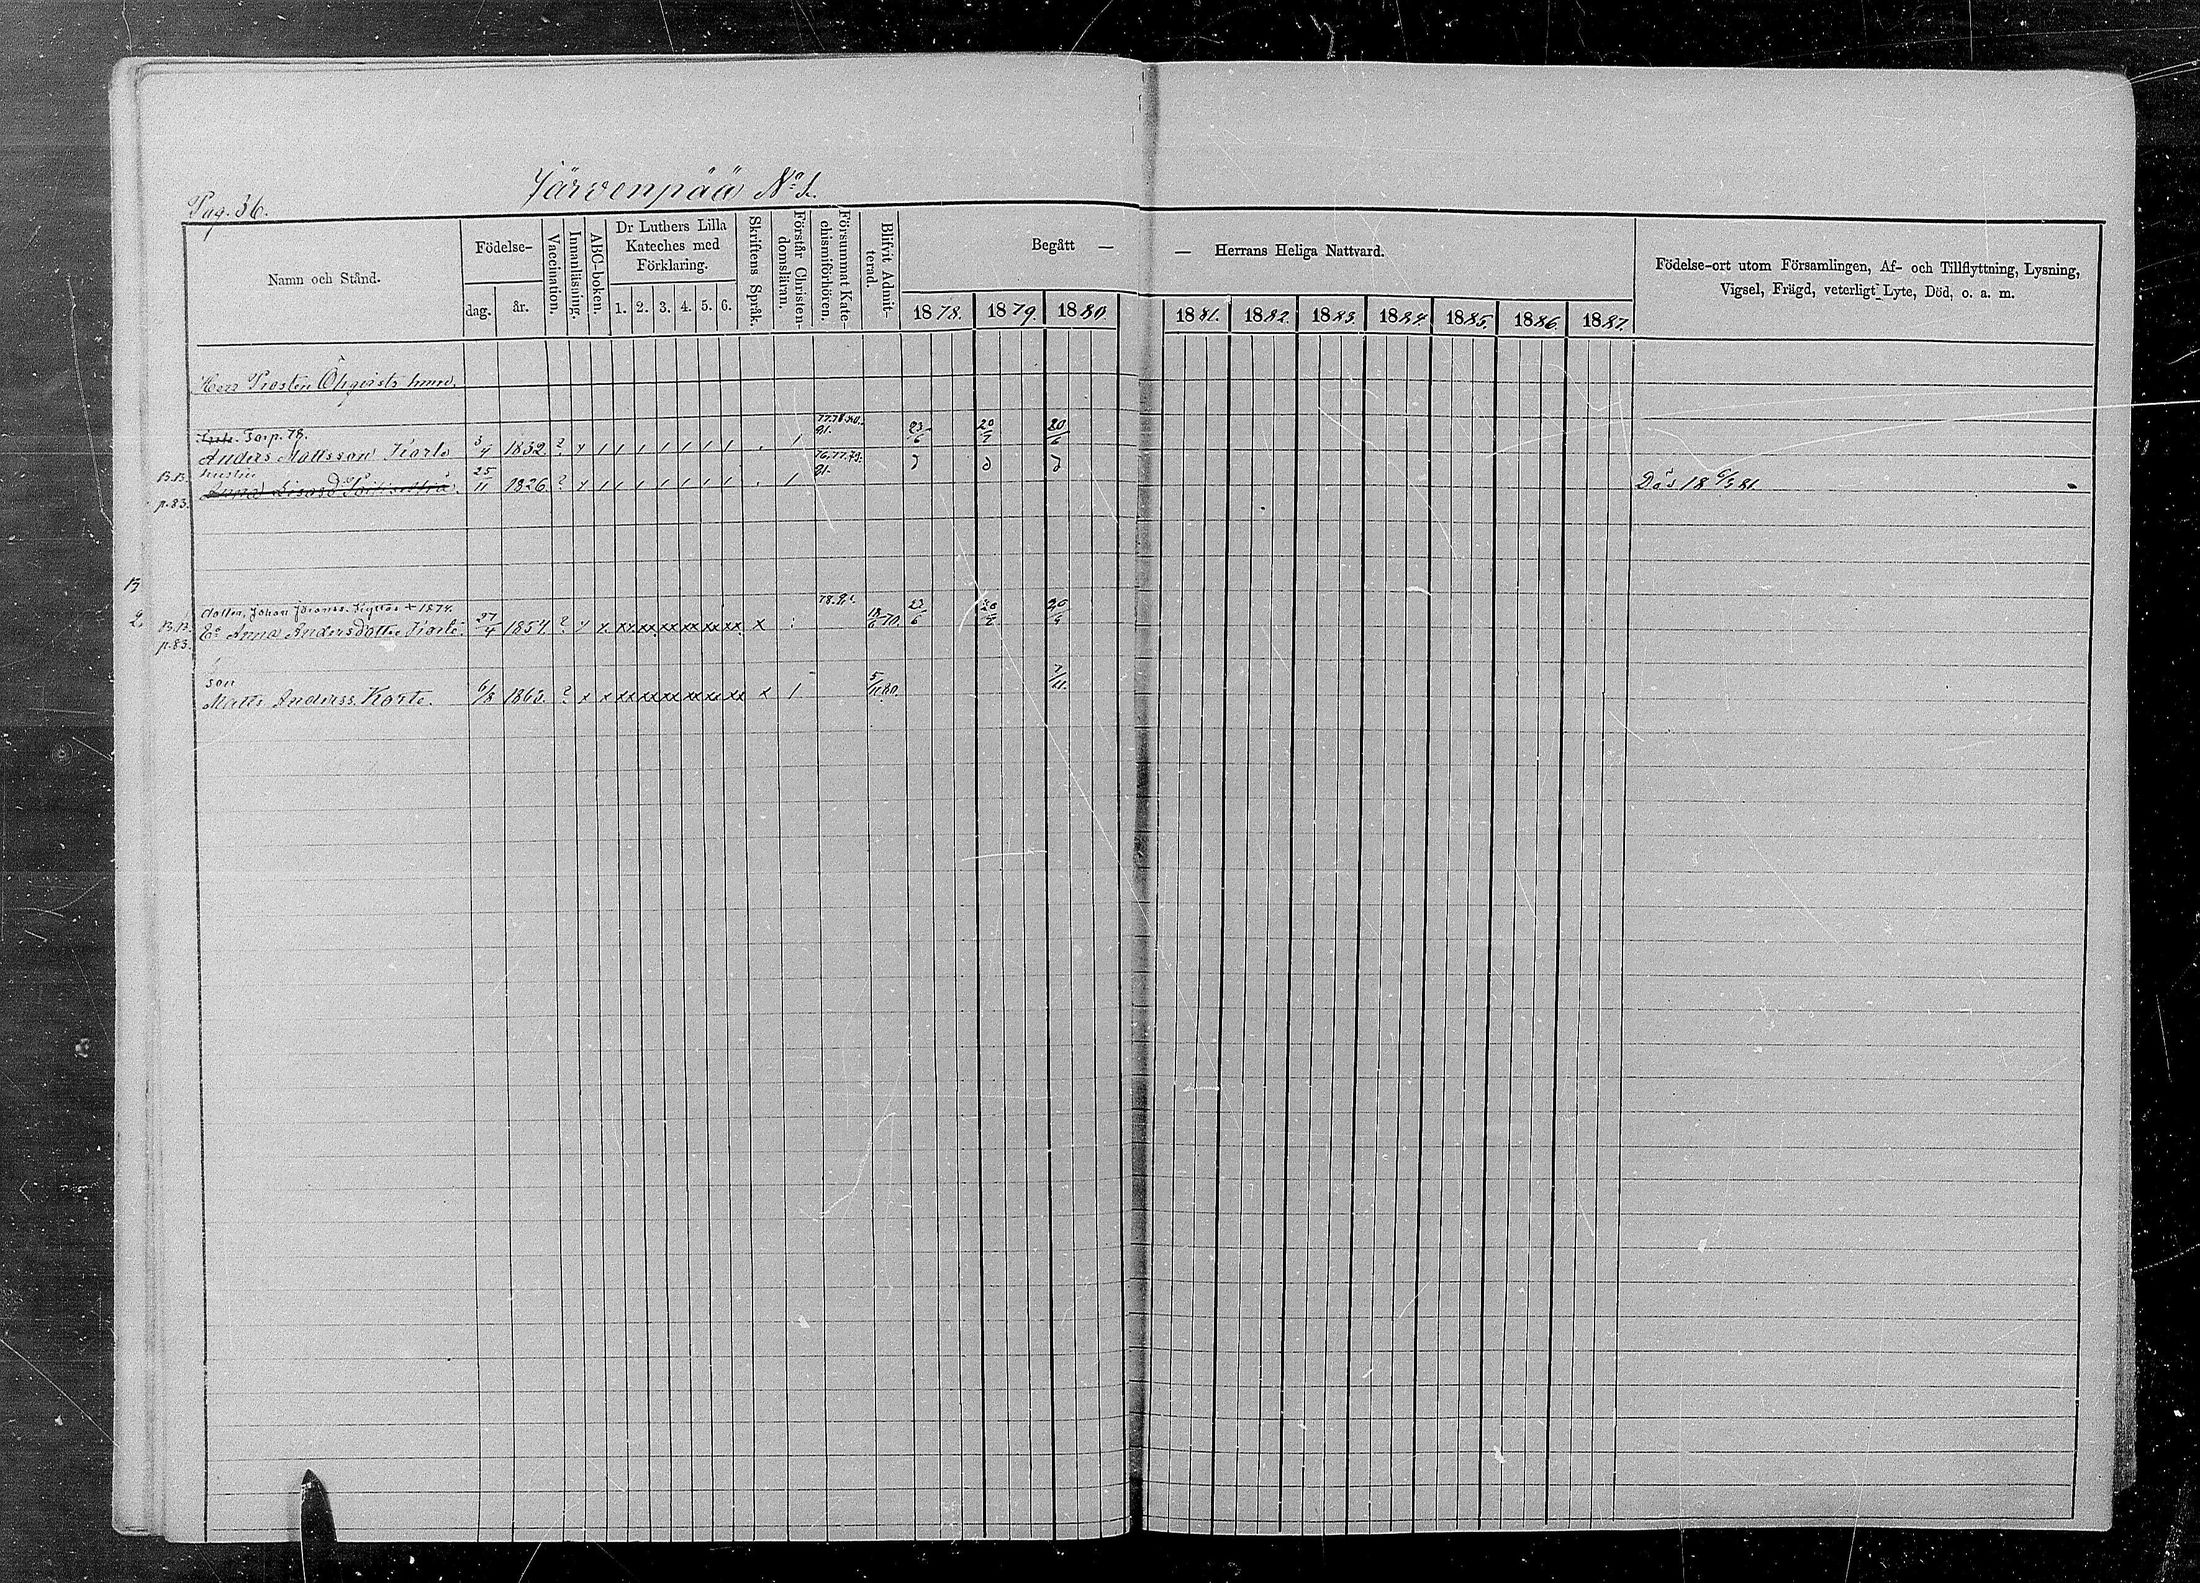 Pag. 36.
Järvenpää No 1.
Namn och Stånd.
Födelse-
dag.
år.
Vaccination.
Innanläsning.
ABC-boken.
Dr Luthers Lilla
Kateches med
Förklaring.
1. 2. 3. 4. 5. 6.
Skriftens Språk.
Förstår Christen-
domsläran.
Försummat Kate-
chismiförhören.
Blifvit Admit-
terad.
Begått —
1878. 1879. 1880.
— Herrans Heliga Nattvard.
1881. 1882. 1883. 1884. 1885. 1886. 1887.
Födelse-ort utom Församlingen, Af- och Tillflyttning, Lysning,
Vigsel, Frägd, veterligt Lyte, Död, o. a. m.
Herr Prosten
77.78.80.
81.
p. 78.
Anders Mattsson Korte 3/4 1832 ? x 1 1 1 1 1 1 1 1 23/6 20/7 20/6
B.B. hustru
76.77.79.
81.
Anna 25/11 1826 ? x 1 1 1 1 1 1 1 1
Död 18 6/3 81
p. 83.
B
dotter, Johan + 1874. 78.81.
2. B.B. Anna Andersdotter Korte. 27/4 1854. ? x x xx xx xx xx xx xx x 18/6 70. 23/6 20/7 20/6
p. 83.
son
Matts Anderss. Korte. 6/8 1863. ? x x xx xx xx xx xx xx x 1 5/11 80. 7/11.